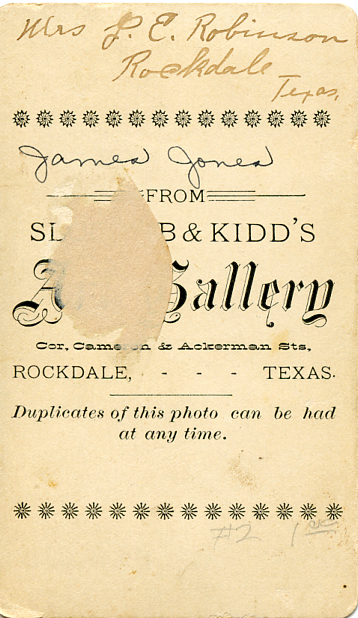 Mrs J. E. Robinson
Rockdale
Texas.
James Jones
FROM
& KIDD'S
Gallery
Cor. Cameron & Ackerman Sts.
ROCKDALE, - - - TEXAS.
Duplicates of this photo can be had
at any time.
#2 1